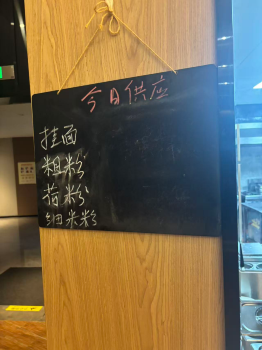 今日供应
挂面
粗粉
苕粉
细米粉